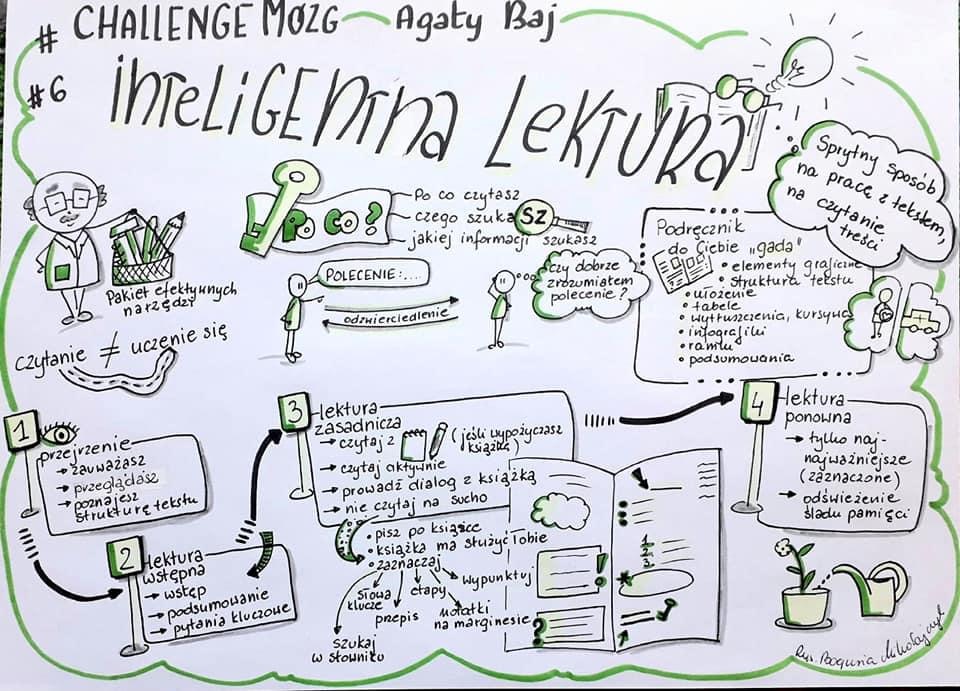 # CHALLENGE MØZG - Agaty Baj
#6
INTELIGENTNA LEKTURA
Sprytny sposób
na pracę z tekstem,
na czytanie
treści
Pakiet efektywnych
narzędzi
czytanie ≠ uczenie się
! Po co?
Po co czytasz
czego szukasz
jakiej informacji szukasz
SZ
POLECENIE:....
odzwierciedlenie
Czy dobrze
zrozumiałem
polecenie?
Podręcznik
do Ciebie „gada”
• elementy graficzne
• struktura tekstu
• ułożenie
• tabele
• wytłuszczenia, kursywa
• infografiki
• ramki
• podsumowania
1
przejrzenie
→ zauważasz
→ przeglądasz
→ poznajesz
strukturę tekstu
2
lektura
wstępna
→ wstęp
→ podsumowanie
→ pytania kluczowe
3
lektura
zasadnicza
→ czytaj z (jeśli wypożyczasz
książkę)
→ czytaj aktywnie
→ prowadź dialog z książką
→ nie czytaj na sucho
• pisz po książce
• książka ma służyć Tobie
• zaznaczaj
słowa
klucze
szukaj
w słowniku
przepis
etapy
notatki
na marginesie
wypunktuj
!
?
1.
2.
3.
4
lektura
ponowna
→ tylko naj-
najważniejsze
(zaznaczone)
→ odświeżenie
śladu pamięci
Rys. Bogusia Mikołajczyk